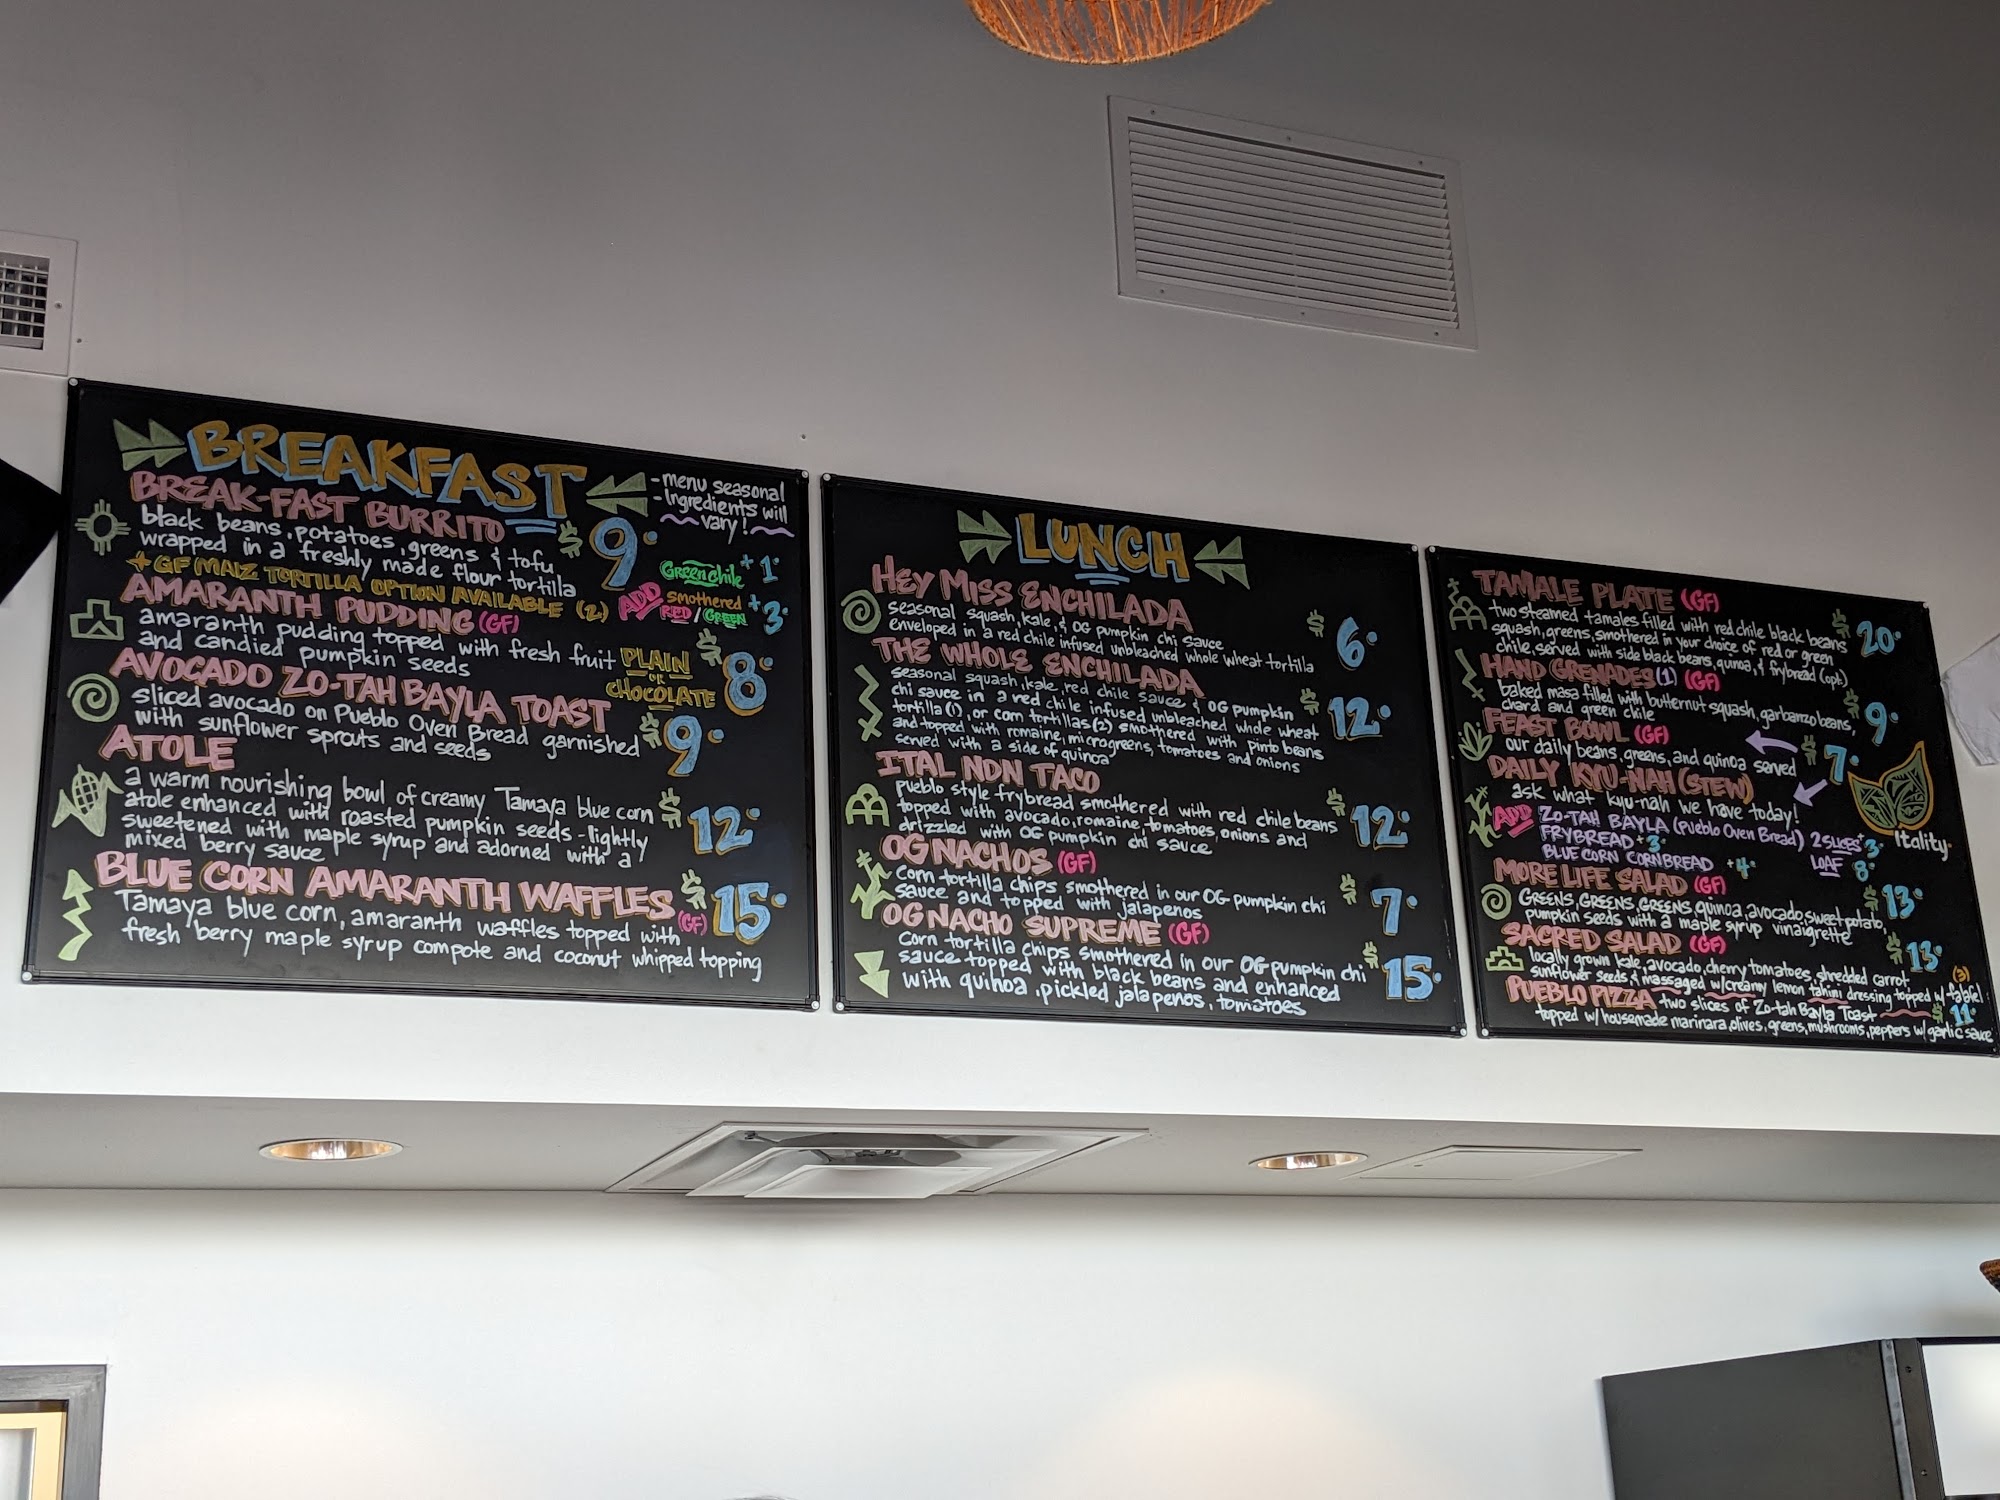 BREAKFAST
- menu seasonal
- Ingredients will
vary!
BREAK-FAST BURRITO
black beans, potatoes, greens & tofu
wrapped in a freshly made flour tortilla
$9.
+GF MAIZ TORTILLA OPTION AVAILABLE (2)
Green chile +1.
ADD Smothered +3.
RED / GREEN
AMARANTH PUDDING (GF)
amaranth pudding topped with fresh fruit
and candied pumpkin seeds
PLAIN
OR
CHOCOLATE
$8.
AVOCADO ZO-TAH BAYLA TOAST
sliced avocado on Pueblo Oven Bread garnished
with sunflower sprouts and seeds
$9.
ATOLE
a warm nourishing bowl of creamy Tamaya blue corn
atole enhanced with roasted pumpkin seeds - lightly
sweetened with maple syrup and adorned with a
mixed berry sauce
$12.
BLUE CORN AMARANTH WAFFLES (GF)
$15.
Tamaya blue corn, amaranth waffles topped with
fresh berry maple syrup compote and coconut whipped topping
LUNCH
HEY MISS ENCHILADA
seasonal squash, kale, & OG pumpkin chi sauce
enveloped in a red chile infused unbleached whole wheat tortilla
$6.
THE WHOLE ENCHILADA
seasonal squash, kale, red chile sauce & OG pumpkin
chi sauce in a red chile infused unbleached whole wheat
tortilla (1), or corn tortillas (2) smothered with pinto beans
and topped with romaine, microgreens, tomatoes and onions
served with a side of quinoa
$12.
ITAL NDN TACO
pueblo style frybread smothered with red chile beans
topped with avocado, romaine, tomatoes, onions and
drizzled with OG pumpkin chi sauce
$12.
OG NACHOS (GF)
corn tortilla chips smothered in our OG pumpkin chi
sauce and topped with jalapenos
$7.
OG NACHO SUPREME (GF)
corn tortilla chips smothered in our OG pumpkin chi
sauce topped with black beans and enhanced
with quinoa, pickled jalapenos, tomatoes
$15.
TAMALE PLATE (GF)
two steamed tamales filled with red chile black beans
squash, greens, smothered in your choice of red or green
chile, served with side black beans, quinoa, & frybread (opt)
$20.
HAND GRENADES (1) (GF)
baked masa filled with butternut squash, garbanzo beans,
chard and green chile
$9.
FEAST BOWL (GF)
our daily beans, greens, and quinoa served
$7.
DAILY KYU-NAH (STEW)
ask what kyu-nah we have today!
ADD ZO-TAH BAYLA (Pueblo Oven Bread) 2 SLICES +3.
FRYBREAD +3.
LOAF 8.
BLUE CORN CORNBREAD +4.
Itality.
MORE LIFE SALAD (GF)
GREENS, GREENS, GREENS, quinoa, avocado, sweet potato,
pumpkin seeds with a maple syrup vinaigrette
$13.
SACRED SALAD (GF)
locally grown kale, avocado, cherry tomatoes, shredded carrot
sunflower seeds & massaged w/creamy lemon tahini dressing topped w/ falafel (3)
$13.
PUEBLO PIZZA two slices of Zo-tah Bayla Toast $11.
topped w/ housemade marinara, olives, greens, mushrooms, peppers w/ garlic sauce